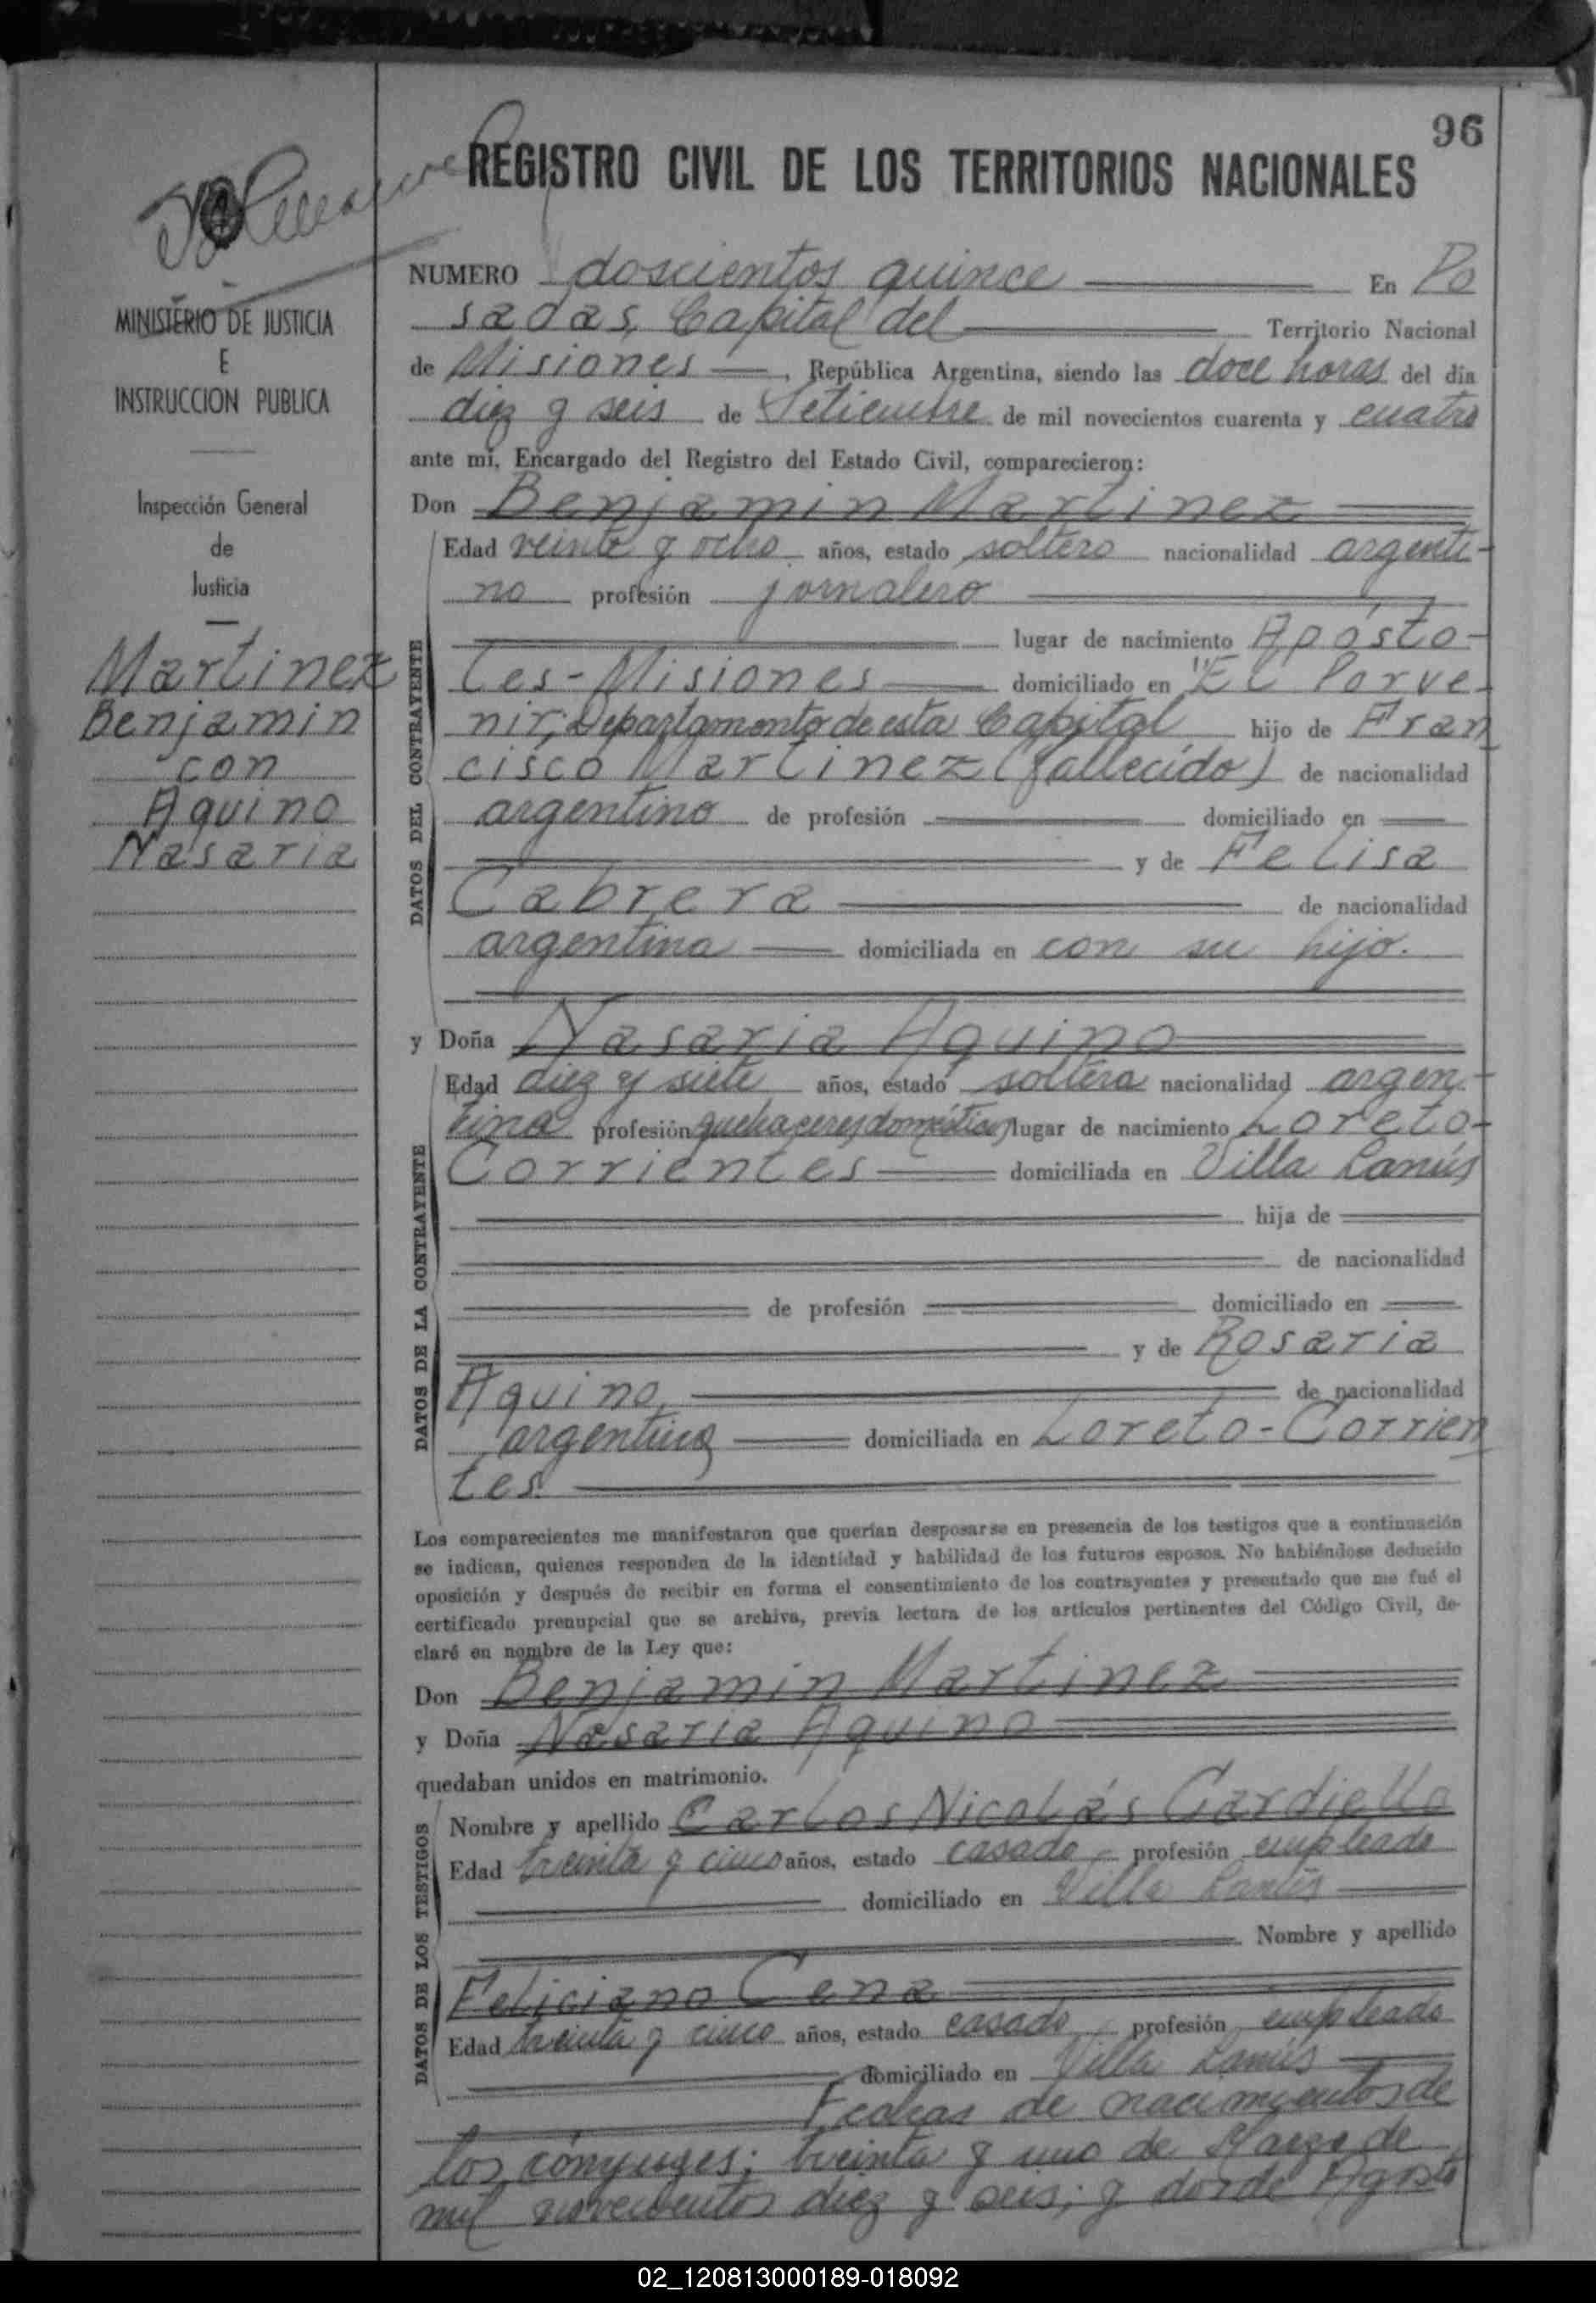 96
REGISTRO CIVIL DE LOS TERRITORIOS NACIONALES
MINISTERIO DE JUSTICIA
E
INSTRUCCION PUBLICA
Inspección General
de
Justicia
Martinez
Benjamin
con
Aquino
Nasaria
NUMERO doscientos quince En Po
sadas, Capital del Territorio Nacional
de Misiones, República Argentina, siendo las doce horas del día
diez y seis de Setiembre de mil novecientos cuarenta y cuatro
ante mí, Encargado del Registro del Estado Civil, comparecieron:
Don Benjamin Martinez
DATOS DEL CONTRAYENTE
Edad veinte y ocho años, estado soltero nacionalidad argenti-
no profesión jornalero
lugar de nacimiento Apósto-
les-Misiones domiciliado en "El Porve-
nir; Departamento de esta Capital hijo de Fran
cisco Martinez (fallecido) de nacionalidad
argentino de profesión domiciliado en
y de Felisa
Cabrera de nacionalidad
argentina domiciliada en con su hijo.
y Doña Nasaria Aquino
DATOS DE LA CONTRAYENTE
Edad diez y siete años, estado soltera nacionalidad argen-
tina profesión quehaceres domésticos lugar de nacimiento Loreto-
Corrientes domiciliada en Villa Lanús
hija de
de nacionalidad
de profesión domiciliado en
y de Rosaria
Aquino, de nacionalidad
argentina domiciliada en Loreto-Corrien
tes.
Los comparecientes me manifestaron que querían desposarse en presencia de los testigos que a continuación
se indican, quienes responden de la identidad y habilidad de los futuros esposos. No habiéndose deducido
oposición y después de recibir en forma el consentimiento de los contrayentes y presentado que me fué el
certificado prenupcial que se archiva, previa lectura de los artículos pertinentes del Código Civil, de-
claré en nombre de la Ley que:
Don Benjamin Martinez
y Doña Nasaria Aquino
quedaban unidos en matrimonio.
DATOS DE LOS TESTIGOS
Nombre y apellido Carlos Nicolás Cardiello
Edad treinta y cinco años, estado casado profesión empleado
domiciliado en Villa Lanús
Nombre y apellido
Feliciano Cena
Edad treinta y cinco años, estado casado profesión empleado
domiciliado en Villa Lanús
Fechas de nacimientos de
los cónyuges: treinta y uno de Marzo de
mil novecientos diez y seis; y dos de Agosto
02_120813000189-018092